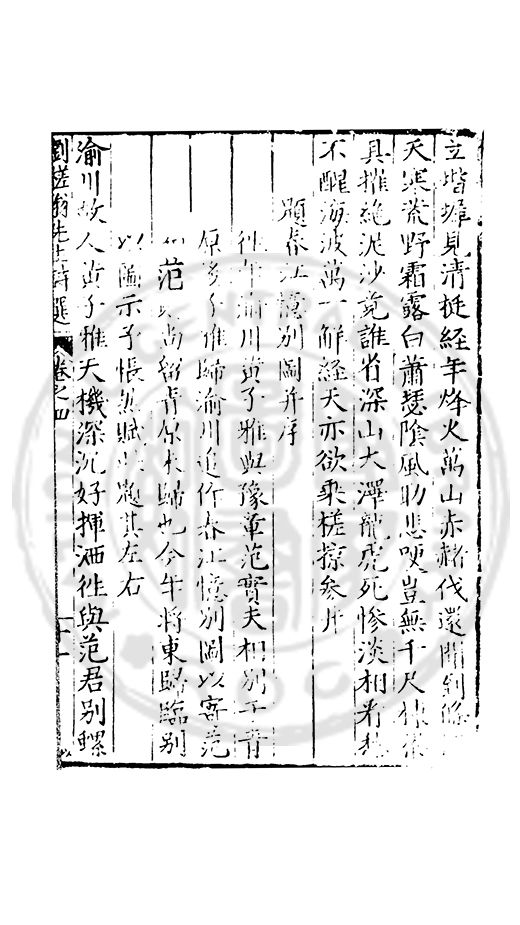 立堦墀見清挺經年烽火萬山赤赭伐還聞到
天寒荒野霜露白蕭瑟陰風助悲哽豈無千尺
具摧絶泥沙竟誰省深山大澤龍虎死慘淡相看
不醒海波萬一解經天亦欲乘槎掠參井
題春江憶別圖并序
往年渝川黄子雅與豫章范實夫相別于青
原多子雅歸渝川追作春江憶別圖以寄范
范尚留青原未歸也今年將東歸臨別
以圖示予悵然賦此題其左右
渝川故人黄子雅天機深沉好揮洒徃與范君别螺
劉槎翁先生詩選 卷之四